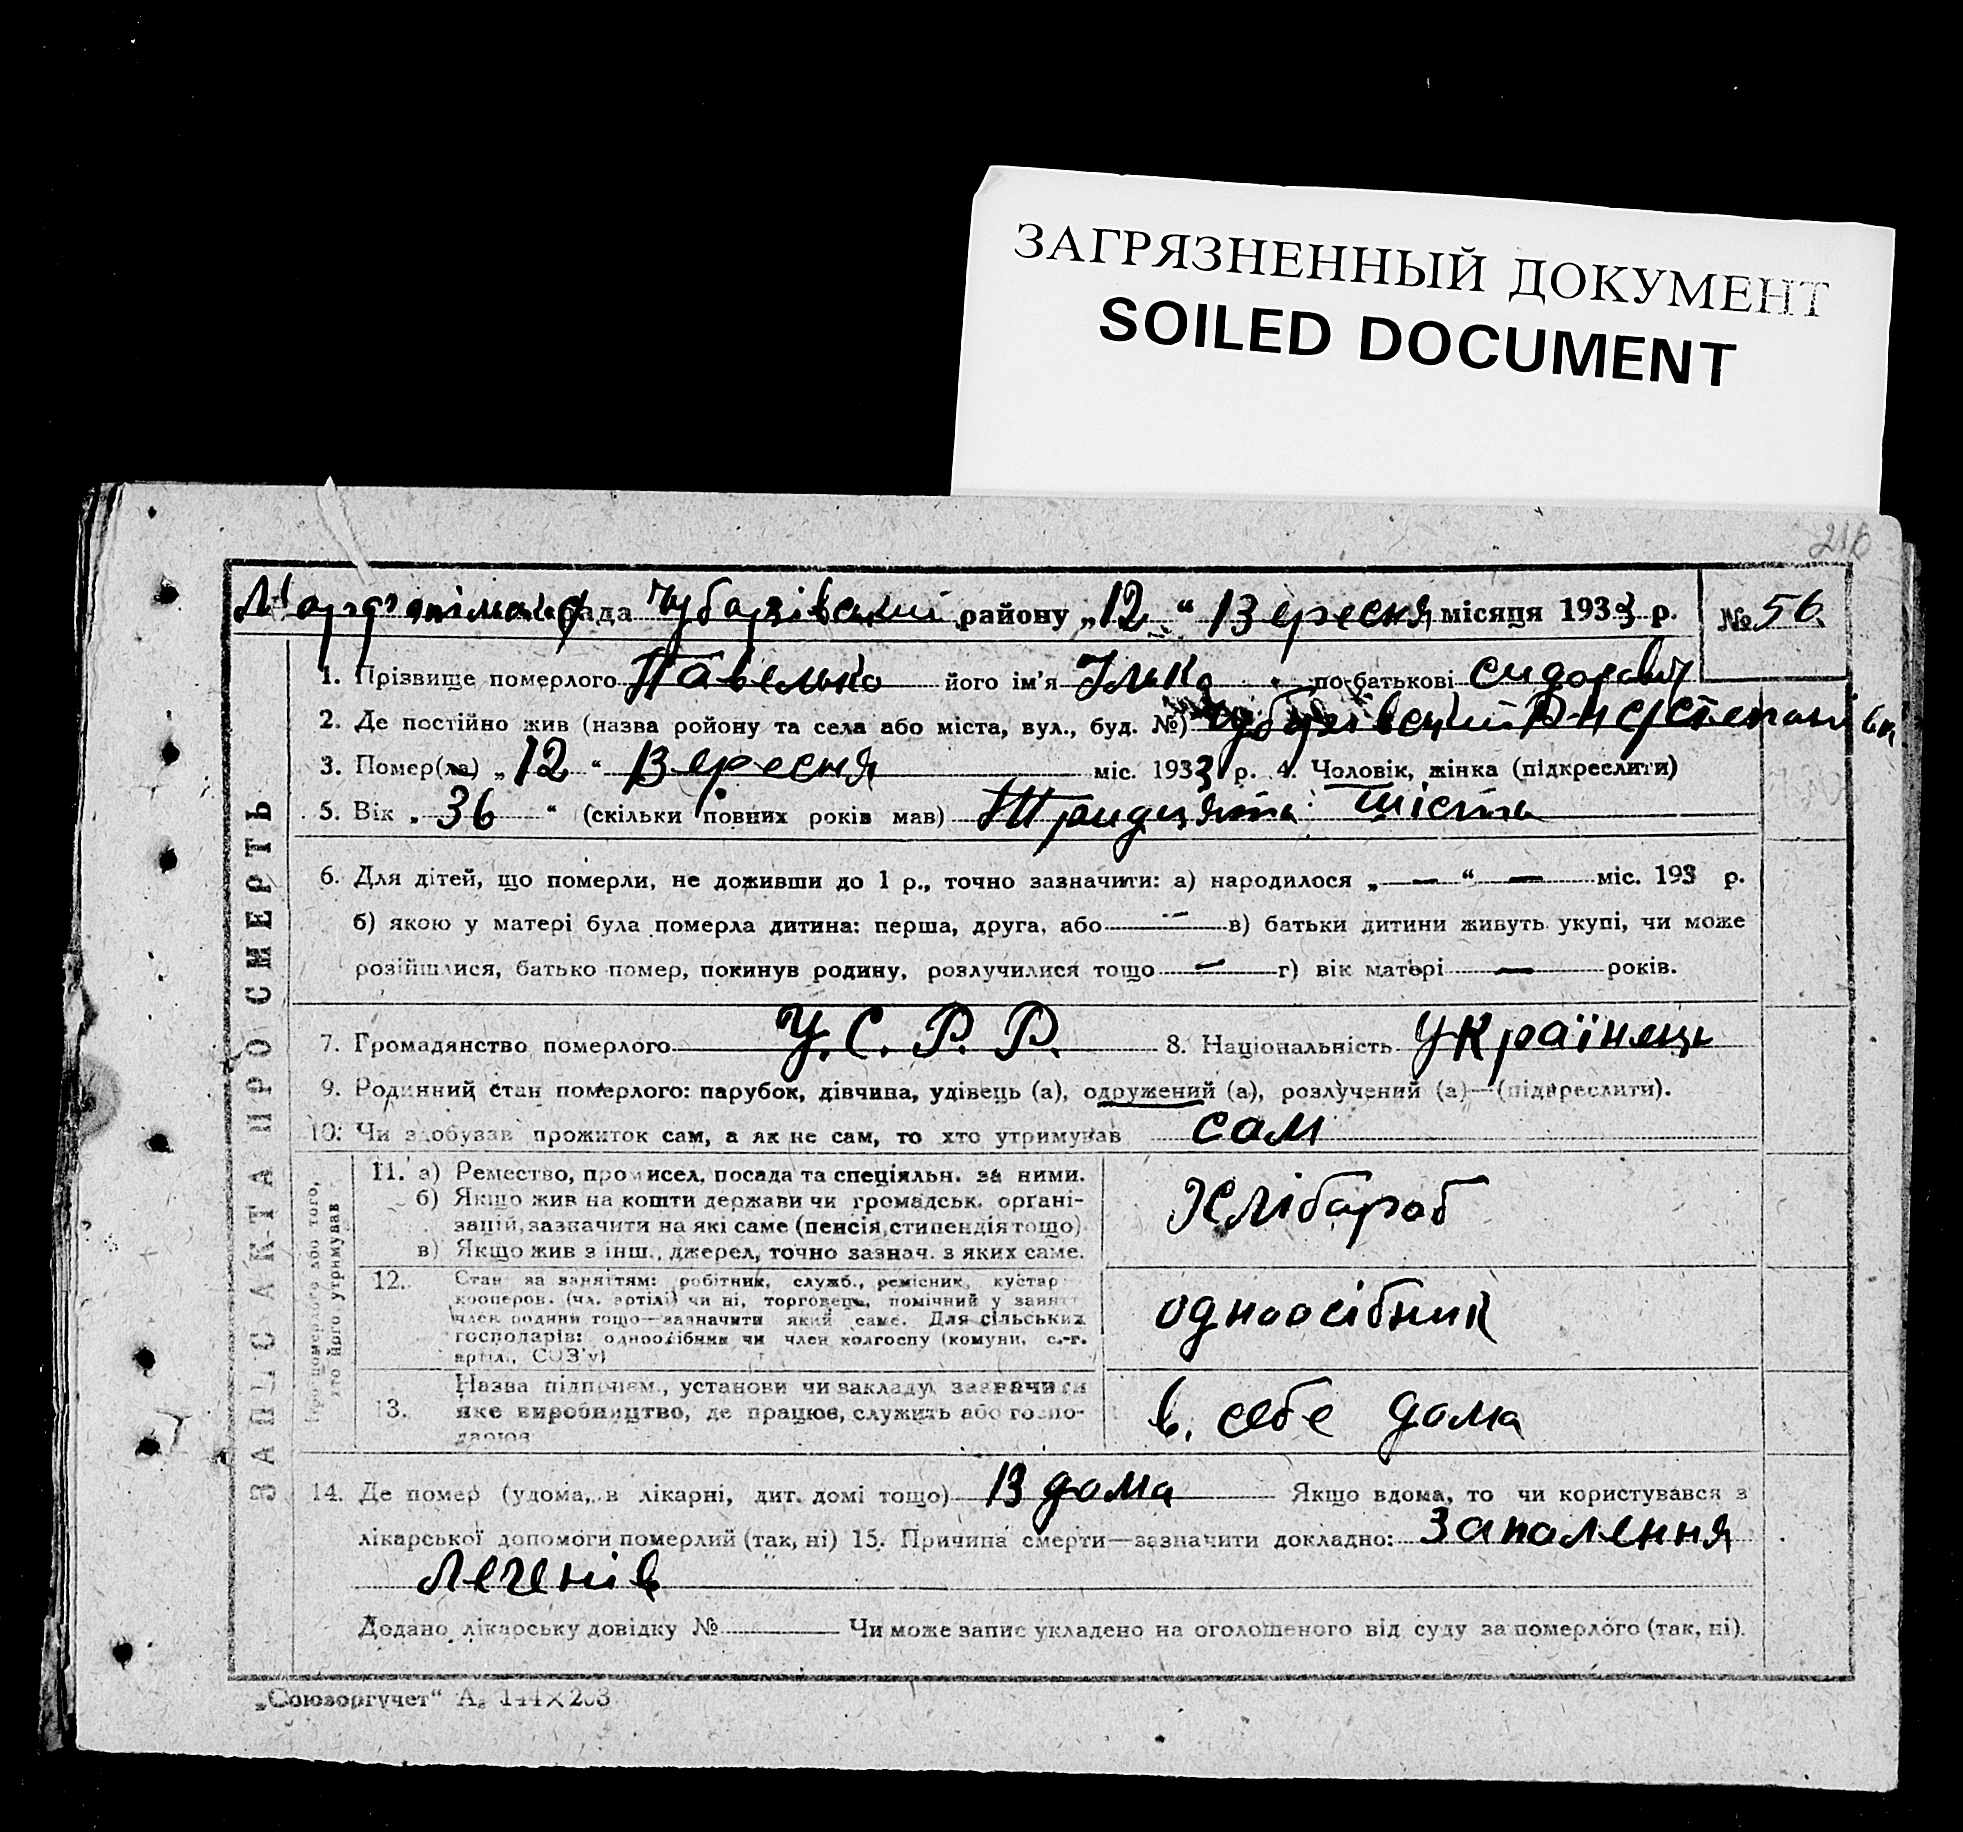 ЗАГРЯЗНЕННЫЙ ДОКУМЕНТ
SOILED DOCUMENT
рада Чубарівський району „12“ Вересня місяця 1933 р. № 56
1. Прізвище померлого Павелько його ім'я Ілька по-батькові Сидорович
2. Де постійно жив (назва ройону та села або міста, вул., буд. №) Чубарівський
3. Помер(ла) „12“ Вересня міс. 1933 р. 4. Чоловік, жінка (підкреслити)
5. Вік „36“ (скільки повних років мав) Тридцять шість
6. Для дітей, що померли, не доживши до 1 р., точно зазначити: а) народилося „—“ — міс. 193 р.
б) якою у матері була померла дитина: перша, друга, або — в) батьки дитини живуть укупі, чи може
розійшлися, батько помер, покинув родину, розлучилися тощо — г) вік матері — років.
7. Громадянство померлого У.С.Р.Р. 8. Національність Українець
9. Родинний стан померлого: парубок, дівчина, удівець (а), одружений (а), розлучений (а)—(підкреслити).
10. Чи здобував прожиток сам, а як не сам, то хто утримував сам
ЗАПИС АКТА ПРО СМЕРТЬ
Про померлого або того,
хто його утримував
11. а) Ремество, промисел, посада та спеціяльн. за ними.
б) Якщо жив на кошти держави чи громадськ. органі-
зацій, зазначити на які саме (пенсія, стипендія тощо)
в) Якщо жив з інш., джерел, точно зазнач. з яких саме.
Хлібароб
12. Стан за заняттям: робітник, служб., ремісник, кустар
кооперов. (чл. артілі) чи ні, торговець, помічний у занятт
член родини тощо—зазначити який саме. Для сільських
господарів: одноосібник чи член колгоспу (комуни, с.-г.
артіл., СОЗ'у)
одноосібник
13. Назва підприєм., установи чи закладу, зазначити
яке виробництво, де працює, служить або госпо-
дарює
в. себе дома
14. Де помер (удома, в лікарні, дит. домі тощо) В дома Якщо вдома, то чи користувався з
лікарської допомоги померлий (так, ні) 15. Причина смерти—зазначити докладно: Запалення
легенів
Додано лікарську довідку № Чи може запис укладено на оголошеного від суду за померлого (так, ні).
„Союзоргучет“